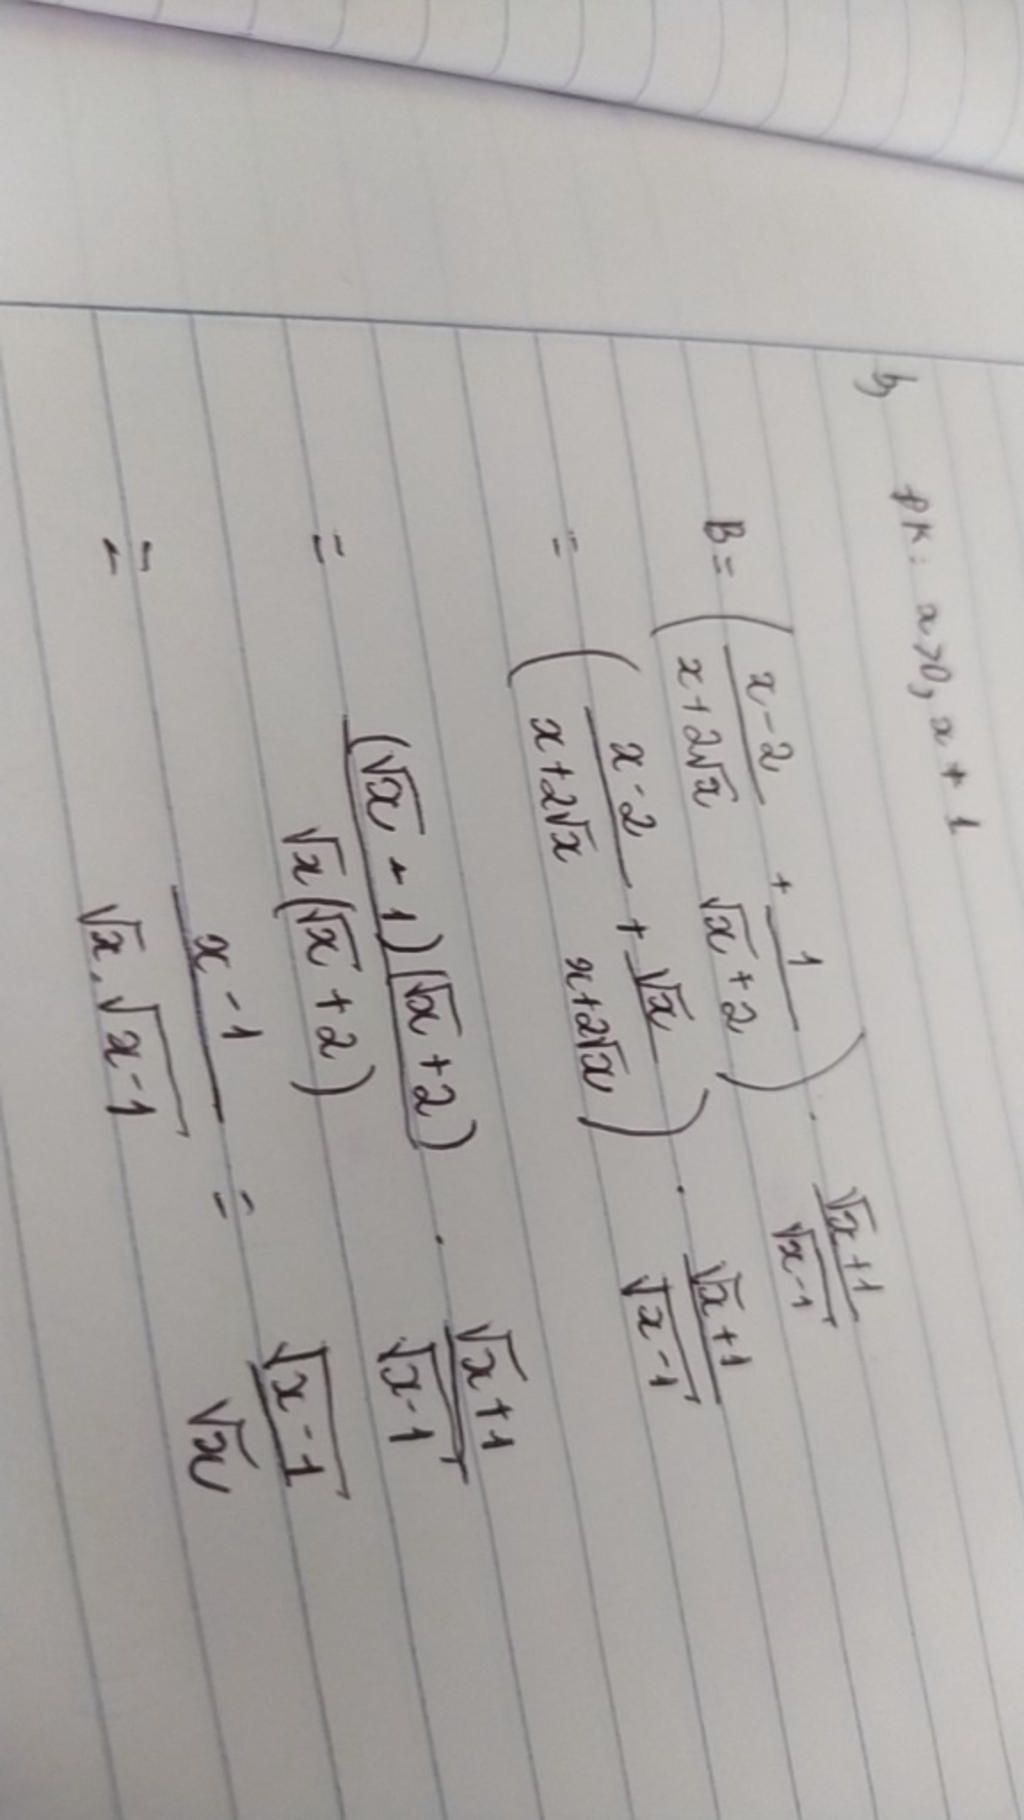 b, ĐK: x>0, x ≠ 1
B = ( (x-2)/(x+2√x) + 1/(√x+2) ) . (√x+1)/(√(x-1))
= ( (x-2)/(x+2√x) + √x/(x+2√x) ) . (√x+1)/(√(x-1))
= ((√x - 1)(√x+2))/(√x(√x+2)) . (√x+1)/(√(x-1))
= (x-1)/(√x.√(x-1)) = √(x-1)/√x